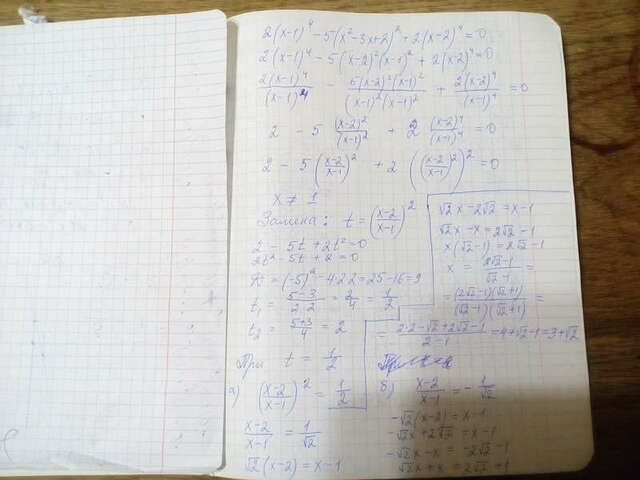 2(x-1)⁴ - 5(x²-3x+2)² + 2(x-2)⁴ = 0
2(x-1)⁴ - 5(x-2)²(x-1)² + 2(x-2)⁴ = 0
2(x-1)⁴/(x-1)⁴ - 5(x-2)²(x-1)²/(x-1)²(x-1)² + 2(x-2)⁴/(x-1)⁴ = 0
2 - 5 (x-2)²/(x-1)² + 2 (x-2)⁴/(x-1)⁴ = 0
2 - 5 (x-2/x-1)² + 2 ((x-2/x-1)²)² = 0
x ≠ 1
Замена: t = (x-2/x-1)²
2 - 5t + 2t² = 0
2t² - 5t + 2 = 0
D = (-5)² - 4·2·2 = 25-16 = 9
t₁ = 5-3/2·2 = 2/4 = 1/2
t₂ = 5+3/4 = 2
При t = 1/2
а) (x-2/x-1)² = 1/2
x-2/x-1 = 1/√2
√2(x-2) = x-1
√2x - 2√2 = x-1
√2x - x = 2√2 - 1
x(√2-1) = 2√2 - 1
x = 2√2-1/√2-1 =
= (2√2-1)(√2+1)/(√2-1)(√2+1) =
= 2·2-√2+2√2-1/2-1 = 4+√2-1 = 3+√2
б) x-2/x-1 = - 1/√2
-√2(x-2) = x-1
-√2x + 2√2 = x-1
-√2x - x = -2√2 - 1
√2x + x = 2√2 + 1